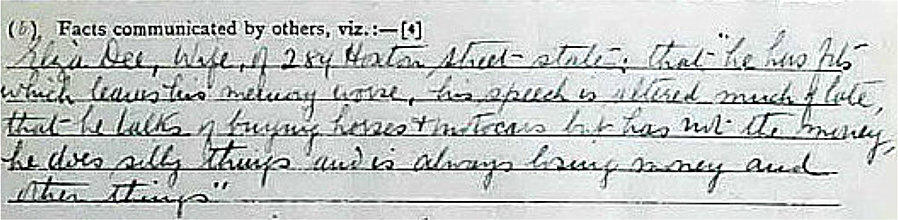 (b) Facts communicated by others, viz.:—[4]
Eliza Dee, Wife, of 284 Hoxton street states: that "he has fits
which leaves his memory worse, his speech is altered much of late,
that he talks of buying horses & motocars but has not the money,
he does silly things and is always losing money and
other things"